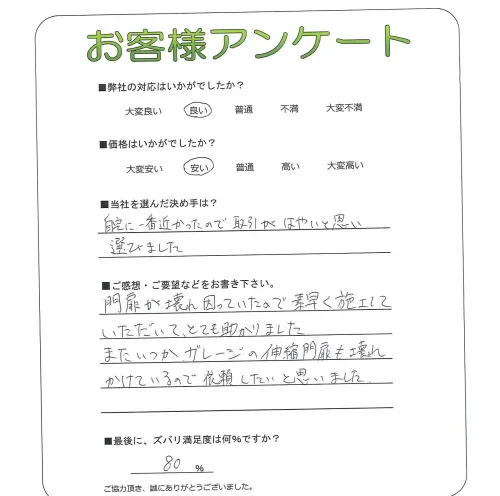 お客様アンケート
■弊社の対応はいかがでしたか？
大変良い 良い 普通 不満 大変不満
■価格はいかがでしたか？
大変安い 安い 普通 高い 大変高い
■当社を選んだ決め手は？
自宅に一番近かったので取引がはやいと思い
選びました
■ご感想・ご要望などをお書き下さい。
門扉が壊れ困っていたので素早く施工して
いただいて、とても助かりました
またいつか、ガレージの伸縮門扉も壊れ
かけているので依頼したいと思いました。
■最後に、ズバリ満足度は何％ですか？
80 %
ご協力頂き、誠にありがとうございました。